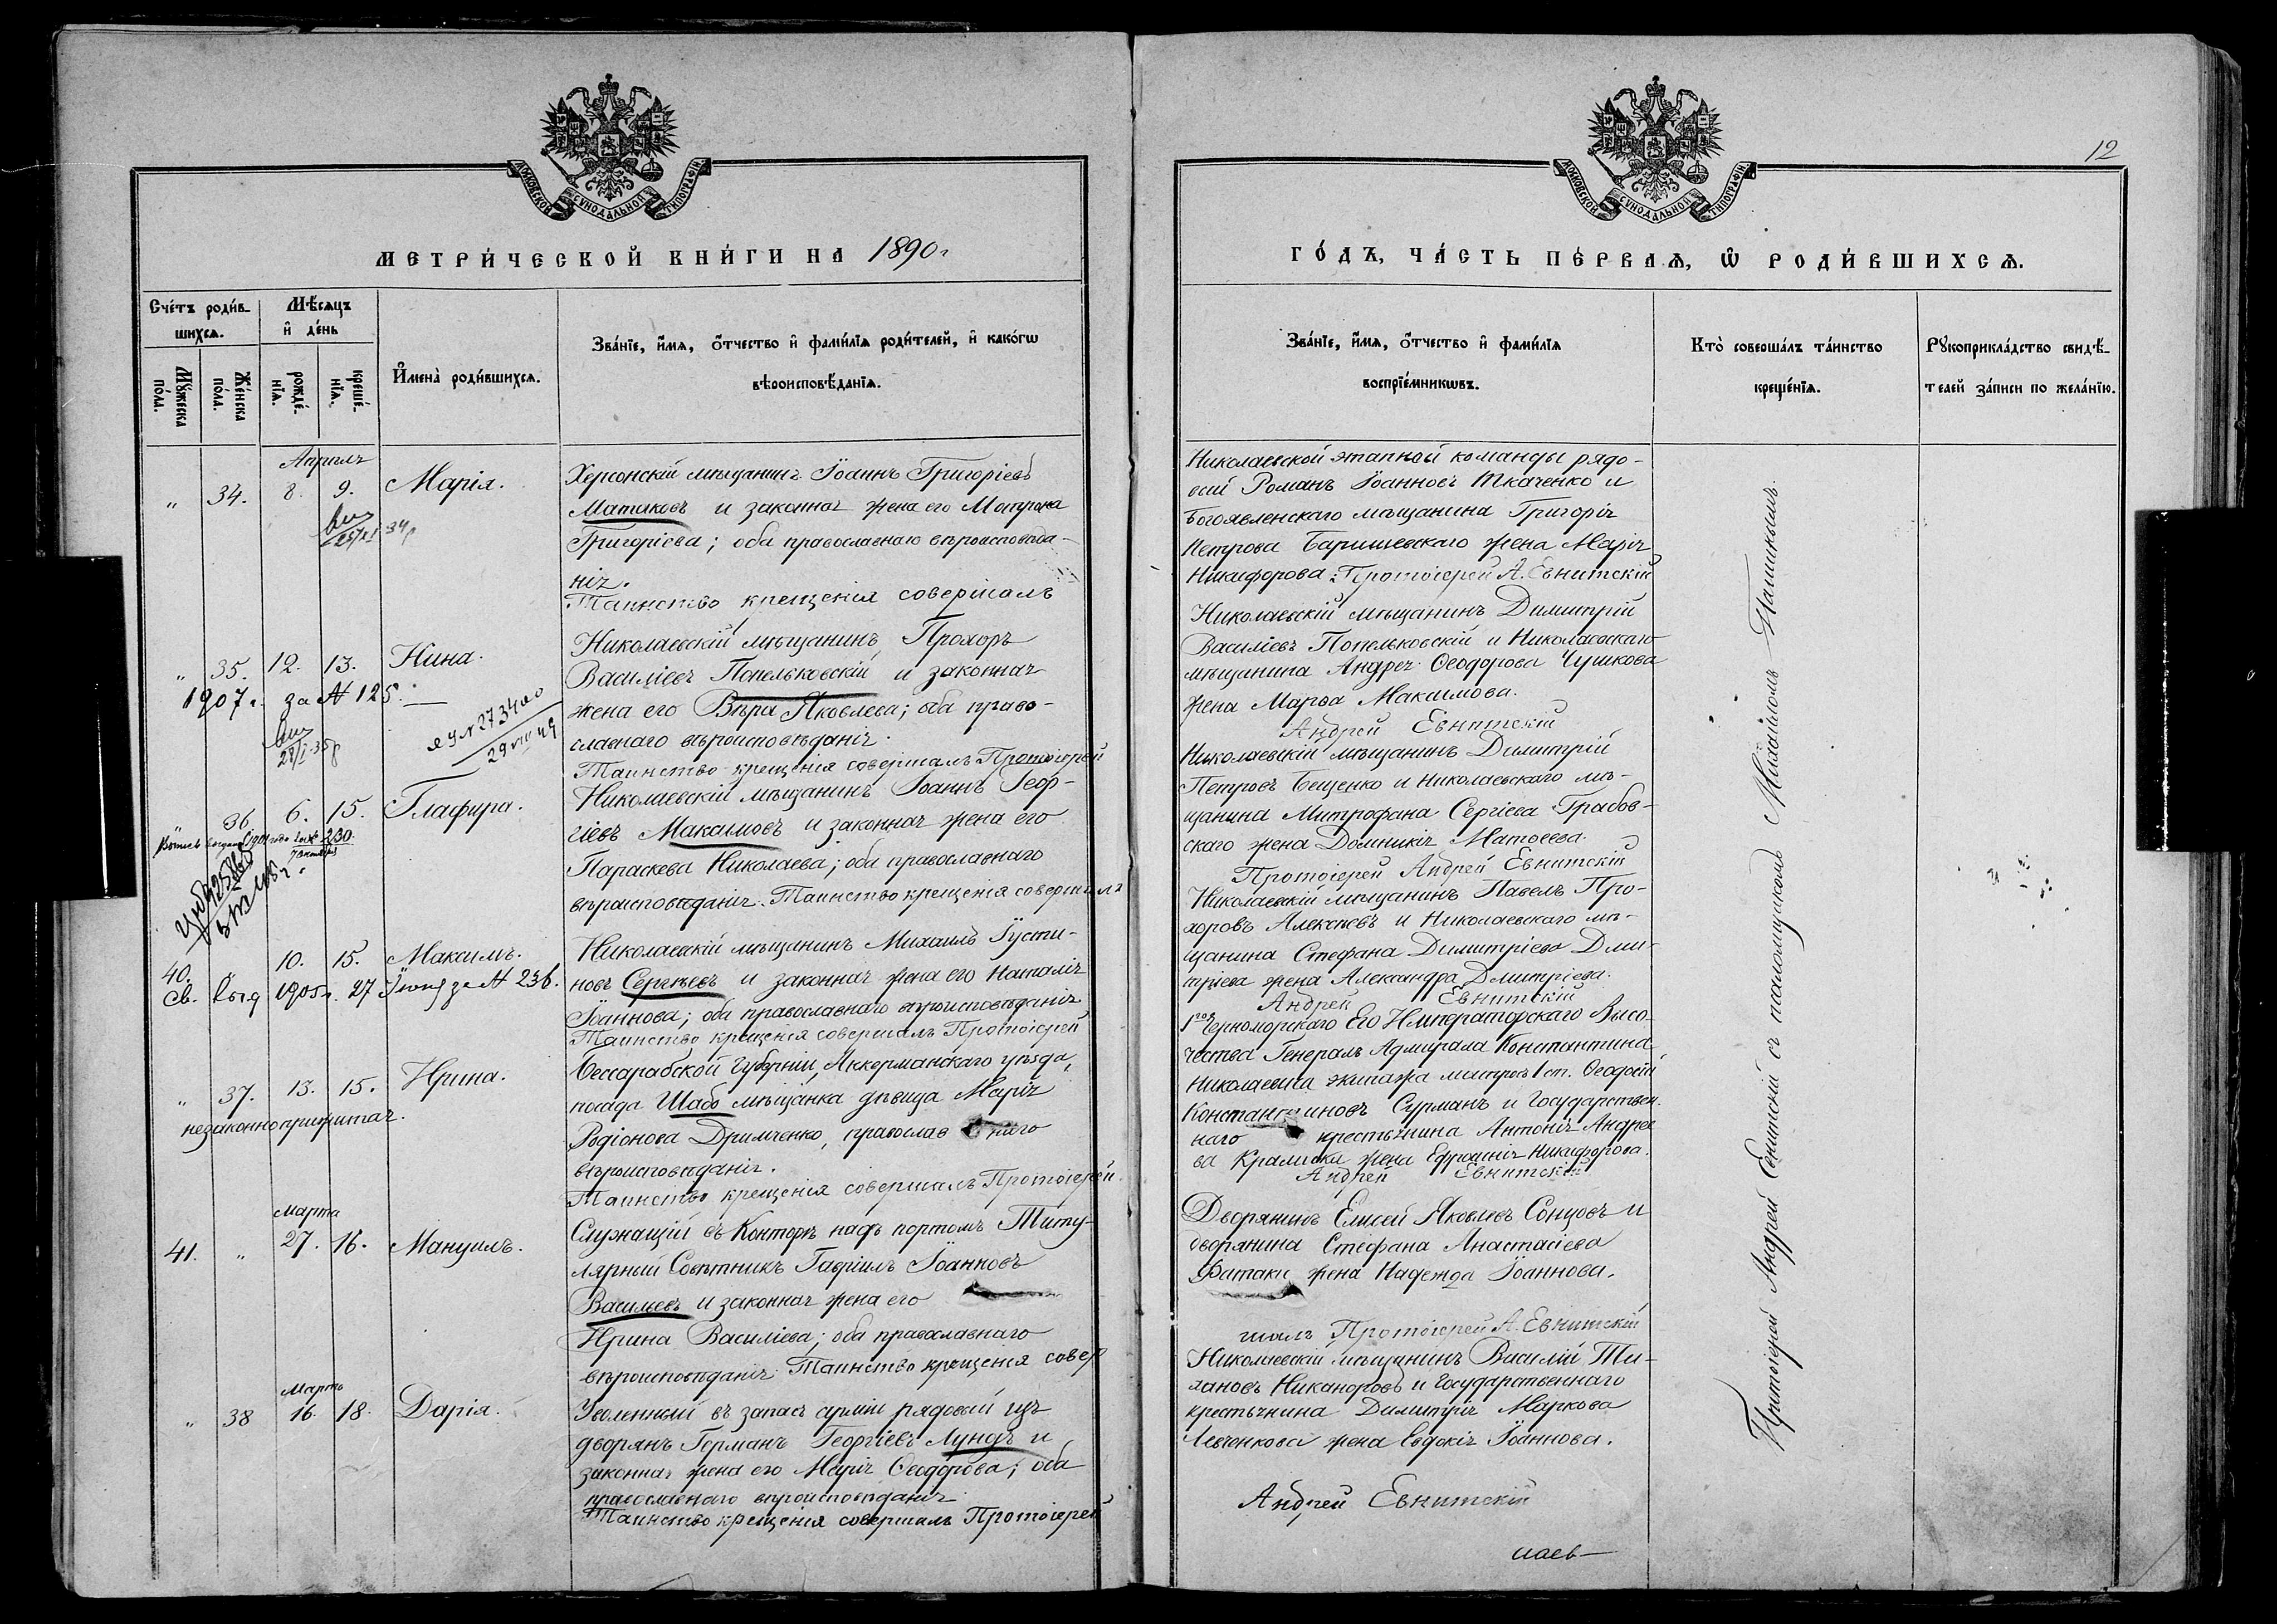 МОСКОВСКОЙ СѴНОДАЛЬНОЙ ТИПОГРАФІИ
МЕТРИ́ЧЕСКОЙ КНИ́ГИ НА 1890 г.
Сче́тъ роди́вшихсѧ.
Мꙋ́жеска по́ла.
Же́нска по́ла.
Мѣ́сѧцъ и҆ де́нь
рожде́нїѧ.
креще́нїѧ.
И҆мена̀ роди́вшихсѧ.
Зва́нїе, и҆́мѧ, ѻ҆́тчество и҆ фами́лїѧ роди́телей, и҆ како́гѡ
вѣроисповѣ́данїѧ.
Апрѣль
" 34. 8. 9. Марія.
25/XI 34 г
Херсонскій мѣщанинъ Іоаннъ Григоріевъ
Матиковъ и законная жена его Матрона
Григоріева; оба православнаго вѣроисповѣда-
нія.
Таинство крещенія совершалъ
" 35. 12. 13. Нина.
1907 г. за № 125.
28/I 35 г
29 VII 49
Николаевскій мѣщанинъ Прохоръ
Василіевъ Попельковскій и законная
жена его Вѣра Яковлева; оба право-
славнаго вѣроисповѣданія.
Таинство крещенія совершалъ Протоіерей
36. 6. 15. Глафира.
230.
Николаевскій мѣщанинъ Іоаннъ Геор-
гіевъ Максимовъ и законная жена его
Параскева Николаева; оба православнаго
вѣроисповѣданія. Таинство крещенія совершалъ
40. 10. 15. Максимъ.
Св. выд 1905 г. 27 Іюня за № 236.
Николаевскій мѣщанинъ Михаилъ Іусти-
новъ Сергѣевъ и законная жена его Наталія
Іоаннова; оба православнаго вѣроисповѣданія
Таинство крещенія совершалъ Протоіерей
" 37. 13. 15. Ирина.
незаконноприжитая.
Бессарабской губерніи, Аккерманскаго уѣзда,
посада Шабо мѣщанка дѣвица Марія
Родіонова Дримченко, православнаго
вѣроисповѣданія.
Таинство крещенія совершалъ Протоіерей.
Марта
41. " 27. 16. Мануилъ.
Служащій въ Конторѣ надъ портомъ Титу-
лярный Совѣтникъ Гавріилъ Іоанновъ
Васильевъ и законная жена его
Ирина Василіева; оба православнаго
вѣроисповѣданія. Таинство крещенія совер
Марта
" 38 16. 18. Дарія.
Уволенный въ запасъ арміи рядовой изъ
дворянъ Германъ Георгіевъ Лундъ и
законная жена его Марія Ѳеодорова; оба
православнаго вѣроисповѣданія
Таинство крещенія совершалъ Протоіерей
12
МОСКОВСКОЙ СѴНОДАЛЬНОЙ ТИПОГРАФІИ
ГО́ДЪ, ЧА́СТЬ ПЕ́РВАѦ, Ѡ҆ РОДИ́ВШИХСѦ.
Зва́нїе, и҆́мѧ, ѻ҆́тчество и҆ фами́лїѧ
воспрїе́мникѡвъ.
Кто̀ соверша́лъ та́инство
креще́нїѧ.
Рꙋкоприкла́дство свидѣ́-
телей за́писи по жела́нїю.
Николаевской этапной команды рядо-
вой Романъ Іоанновъ Ткаченко и
Богоявленскаго мѣщанина Григорія
Петрова Баришевскаго жена Марія
Никифорова. Протоіерей А. Евнитскій
Николаевскій мѣщанинъ Димитрій
Василіевъ Попельковскій и Николаевскаго
мѣщанина Андрея Ѳеодорова Чушкова
жена Марѳа Максимова.
Андрей Евнитскій
Николаевскій мѣщанинъ Димитрій
Петровъ Бещенко и Николаевскаго мѣ-
щанина Митрофана Сергіева Грабов-
скаго жена Домникія Матѳеева.
Протоіерей Андрей Евнитскій
Николаевскій мѣщанинъ Павелъ Про-
хоровъ Алексѣевъ и Николаевскаго мѣ-
щанина Стефана Димитріева Дми-
тріева жена Александра Дмитріева.
Андрей Евнитскій
1го Черноморскаго Его Императорскаго Высо-
чества Генералъ Адмирала Константина
Николаевича экипажа матросъ 1 ст. Ѳеодосій
Константиновъ Сурманъ и Государствен-
наго крестьянина Антонія Андрее
ва жена Евфросинія Никифорова.
Андрей Евнитскій
Дворянинъ Елисей Яковлевъ Сонцовъ и
дворянина Стефана Анастасіева
Фатаки жена Надежда Іоаннова.
шалъ Протоіерей А. Евнитскій
Николаевскій мѣщанинъ Василій Ти-
хановъ Никаноровъ и Государственнаго
крестьянина Димитрія Маркова
Левченкова жена Евдокія Іоаннова.
Андрей Евнитскій
Протоіерей Андрей Евнитскій съ псаломщикомъ Михаиломъ Пашинымъ.